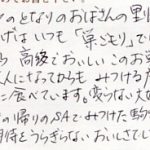 つのとなりのおばさんの里
げはいつも「巣ごもり」で
高級でおいしいこのお
人になってからも みつける
に食べています。変らない大
の帰りのSAでみつけた
待をうらぎらない おいしさ